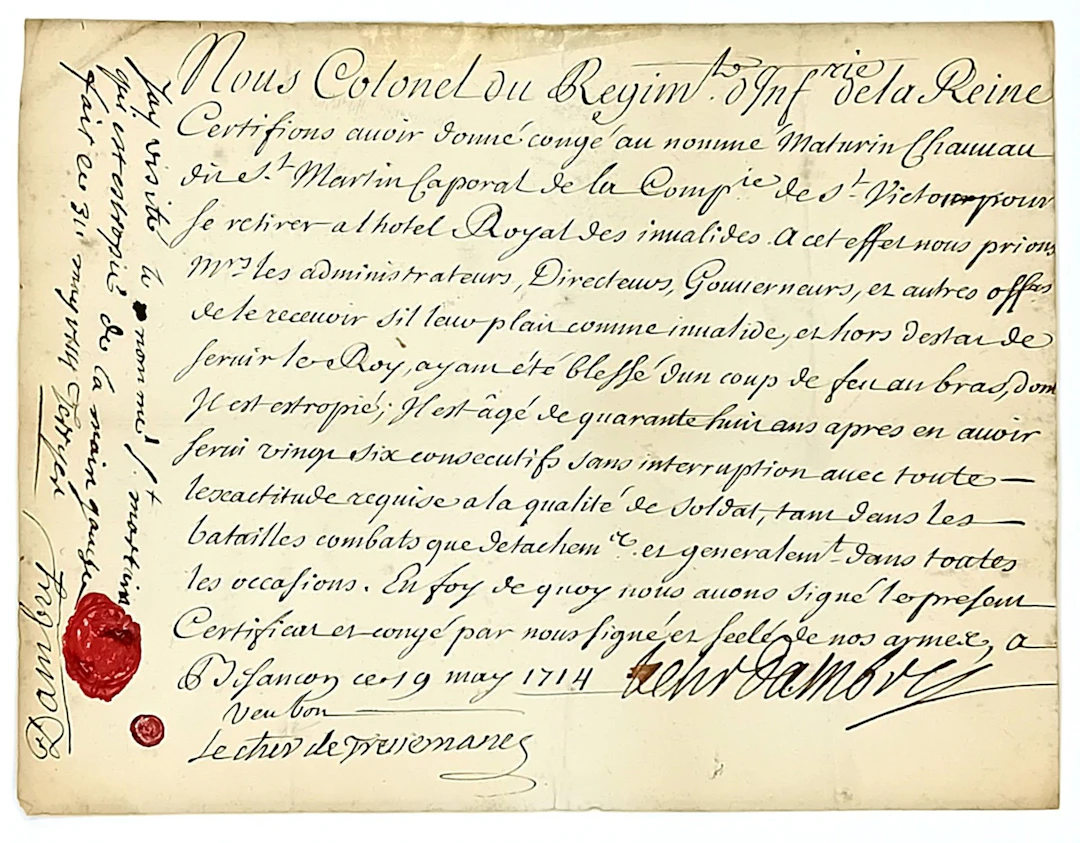 Nous Colonel du Regimt. d'Infrie de la Reine
Certifions auoir donné congé au nommé Maturin Chauuau
dit St. Martin Caporal de la Compie de St. Victour pour
se retirer a lhotel Royal des inualides. A cet effet nous prions
Mrs les administrateurs, Directeurs, Gouuerneurs, et autres offas
de le receuoir sil leur plait comme inualide, et hors destat de
seruir le Roy, ayant été blessé dun coup de feu au bras, dont
Il est estropié; Il est âgé de quarante huit ans apres en auoir
serui vingt six consecutifs sans interruption auec toute
lexactitude requise a la qualité de soldat, tant dans les
batailles combats que detachemts. et generalemt. dans toutes
les occasions. En foy de quoy nous auons signé le present
Certificat et congé par nous signé et seelé de nos armes, a
Besançon ce 19 may 1714
Veu bon
Le cher de Tressemanes
Jay visité le nommé St martin
qui est estropié de la main gauche
fait ce 31 may